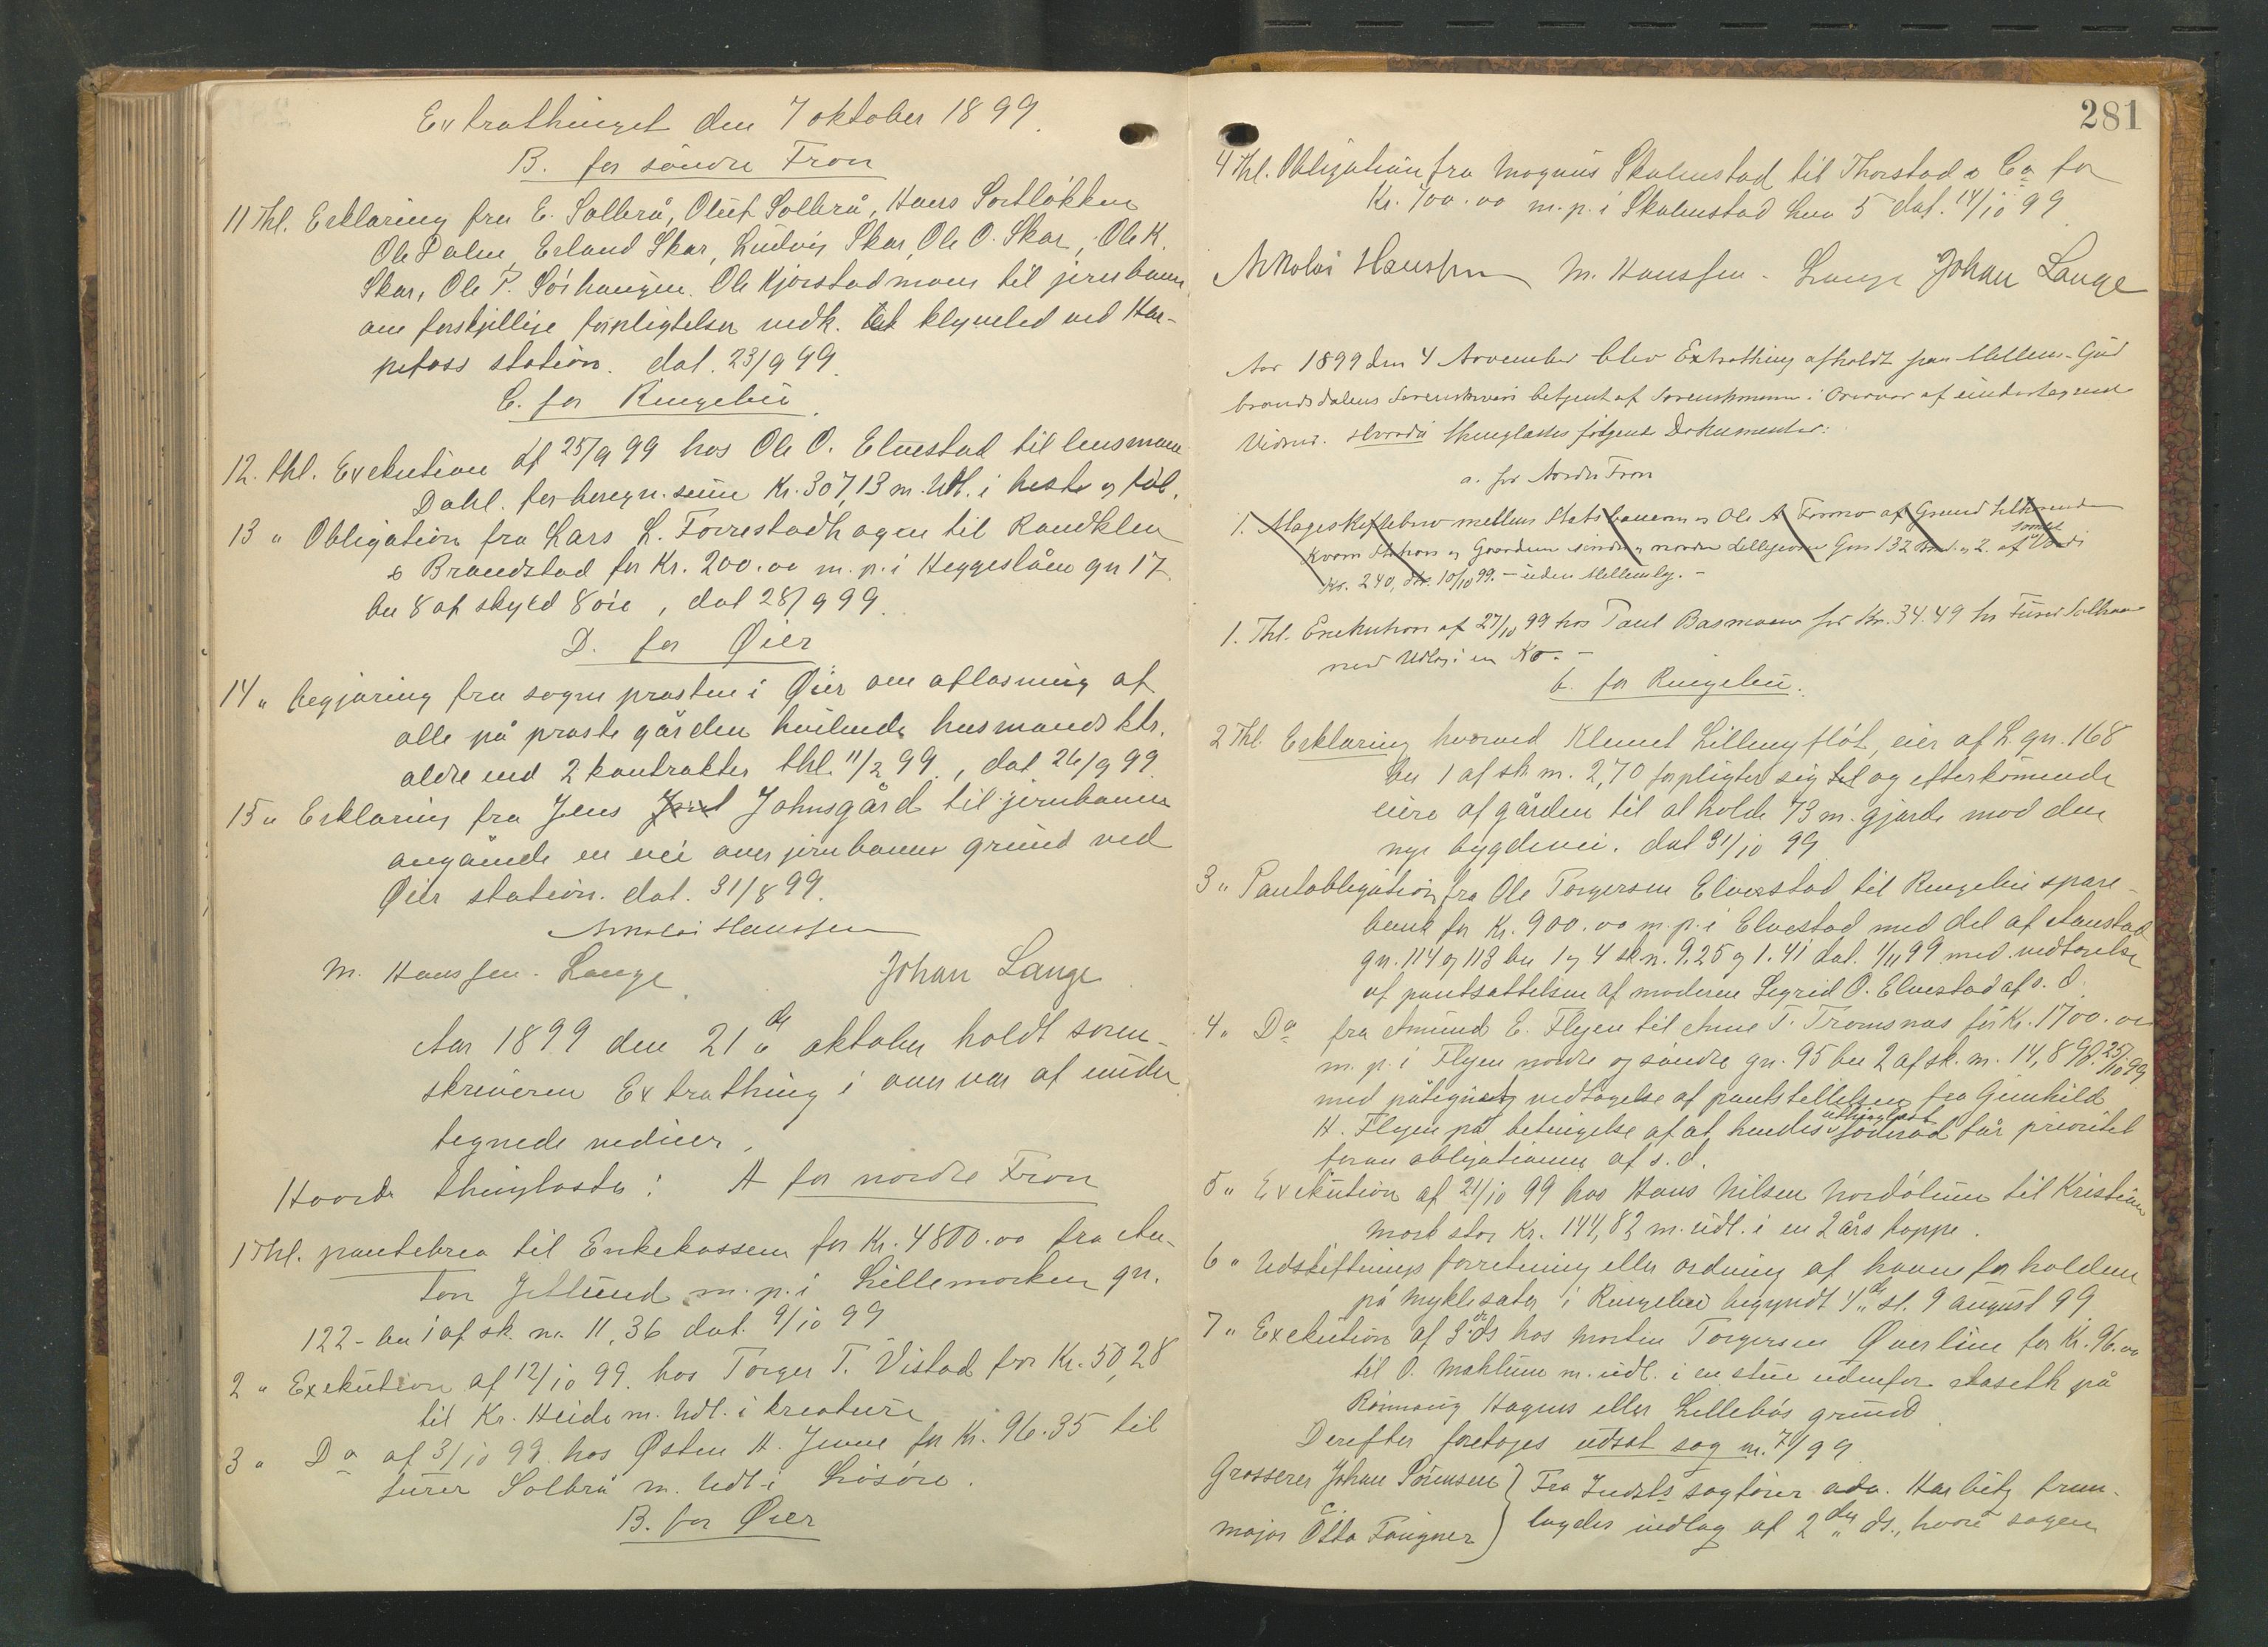 Extrathinget den 7 oktober 1899.
B. for söndre Fron
11 Thl. Erklæring fra E. Solbrå, Oluf Solbrå, Hans Sortløkken
Ole Dalen, Erland Skar, Ludvig Skar, Ole O. Skar, Ole K.
Skar, Ole P. Sørhaugen. Ole Kjørstadmoen til jernbanen
om forskjellige forpligtelser vedk. et klyvled ved Har-
pefoss station. dat. 23/9 99.
C. for Ringebu.
12. thl. Exekution af 25/9 99 hos Ole O. Elvestad til lensmann
Dahl. for beregn. sum Kr. 307,13 m. Udl. i heste og føl.
13 " Obligation fra Lars L. Forrestadhagen til Randklev
& Brandstad for Kr. 200.00 m. p. i Heggeslåen gn 17.
bn 8 af skyld 8 øre, dat 28/9 99.
D. for Øier
14 " begjæring fra sogneprasten i Øier om aflæsning af
alle på prastegården hvilende husmandsktr.
aldre end 2 kontrakter thl. 11/2 99, dat 26/9 99.
15 " Erklæring fra Jens Johnsgård til jernbanen
angående en vei over jernbanens grund ved
Øier station. dat. 31/8 99.
Nikolai Hanssen
M. Hanssen-Lange Johan Lange
Aar 1899 den 21de oktober holdt soren-
skriveren Extrathing i overvær af under
tegnede vidner.
Hvorda thinglæstes: A for nordre Fron
1 Thl. pantebrev til Enkekassen for Kr. 4800.00 fra An-
ton Jetlund m. p. i Lillemorken gn.
122 - bn 1 af sk. m. 11,36 dat. 9/10 99
2 " Exekution af 12/10 99. hos Torger T. Vistad for Kr. 50,28
til Kr. Heide m. Udl. i kreature
3 " Do af 3/10 99 hos Østen H. Jevne for Kr. 96.35 til
furer Solbrå m. Udl. i Løsøre.
B. for Øier
281
4 Thl. Obligation fra Magnus Skalmstad til Thorstad & Co for
Kr. 700.00 m. p. i Skalmstad 5 dat. 14/10 99
Nikolai Hanssen M. Hanssen-Lange Johan Lange
Aar 1899 den 4 November blev Extrathing afholdt for Mellem-Gud
brandsdalens Sorenskriveri betjent af Sorenskriveren i Overvær af undertegnede
Vidner. Hvorda thinglæstes følgende Dokumenter:
a. for Nordre Fron
1. Mageskiftebrev mellem Statsbanerne og Ole A. Formo af Grund tilhørende
Kvam Station og Gaardene søndre og nordre Gno 132 og 2. af Værdi
Kr. 240, dat. 10/10 99. - uden Mellemlag. -
1. Thl. Exekution af 27/10 99 hos Paul Basmoen for Kr. 34.49 til Furer Solbraa
med Udlæg i en Ko. -
b. for Ringebu.
2 Thl. Erklæring hvorved Klemet Lillengfløt, eier af L. gn. 168
bn 1 af sk m. 2,70 forpligter sig til og efterkommende
eiere af gården til at holde 73 m. gjærde mod den
nye bygdevei. dat 31/10 99
3 " Pantobligation fra Ole Torgersen Elvestad til Ringebu spare-
bank for Kr. 900.00 m. p. i Elvestad med del af Aanstad
gn. 114 og 113 bn 1 og 4 sk m. 9.25 og 1.41 dat. 1/11 99 med vedtagelse
af pantsættelsen af moderen Sigrid O. Elvestad af s. d.
4 " Do fra Amund E. Flyen til Anne T. Tromsnæs for Kr. 1700.00
m. p. i Flyen nordre og søndre gn. 95 bn 2 af sk. m. 14,89 d. 25/10 99
med påtegnet vedtagelse af pantstillelsen fra Gunhild
uthinglæst
H. Flyen på betingelse af at hendes föderåd får prioritet
foran obligationen af s. d.
5 " Exekution af 21/10 99 hos Hans Nilsen Nordölum til Kristian
stor Kr. 144,82 m. udl. i en 2 års hoppe.
6 " Udskiftningsforretning eller ordning af havneforholdene
på Myklesæter i Ringebu begyndt 4de sl. 9 august 99
7 " Exekution af 3die ds hos Morten Torgersen Øverlien for Kr. 96.00
til O. Mæhlum m. udl. i en stue udenfor Aaseth på
Rönnaug Hagens eller Lillebös grund
Derefter foretoges udsat sag nr. 7/99
Grosserer Johan Sörensen } Fra Indst's sagfører adv. Harbitz frem-
c.
major Otto Faugner } lagdes indlæg af 2den ds., hvori sagen